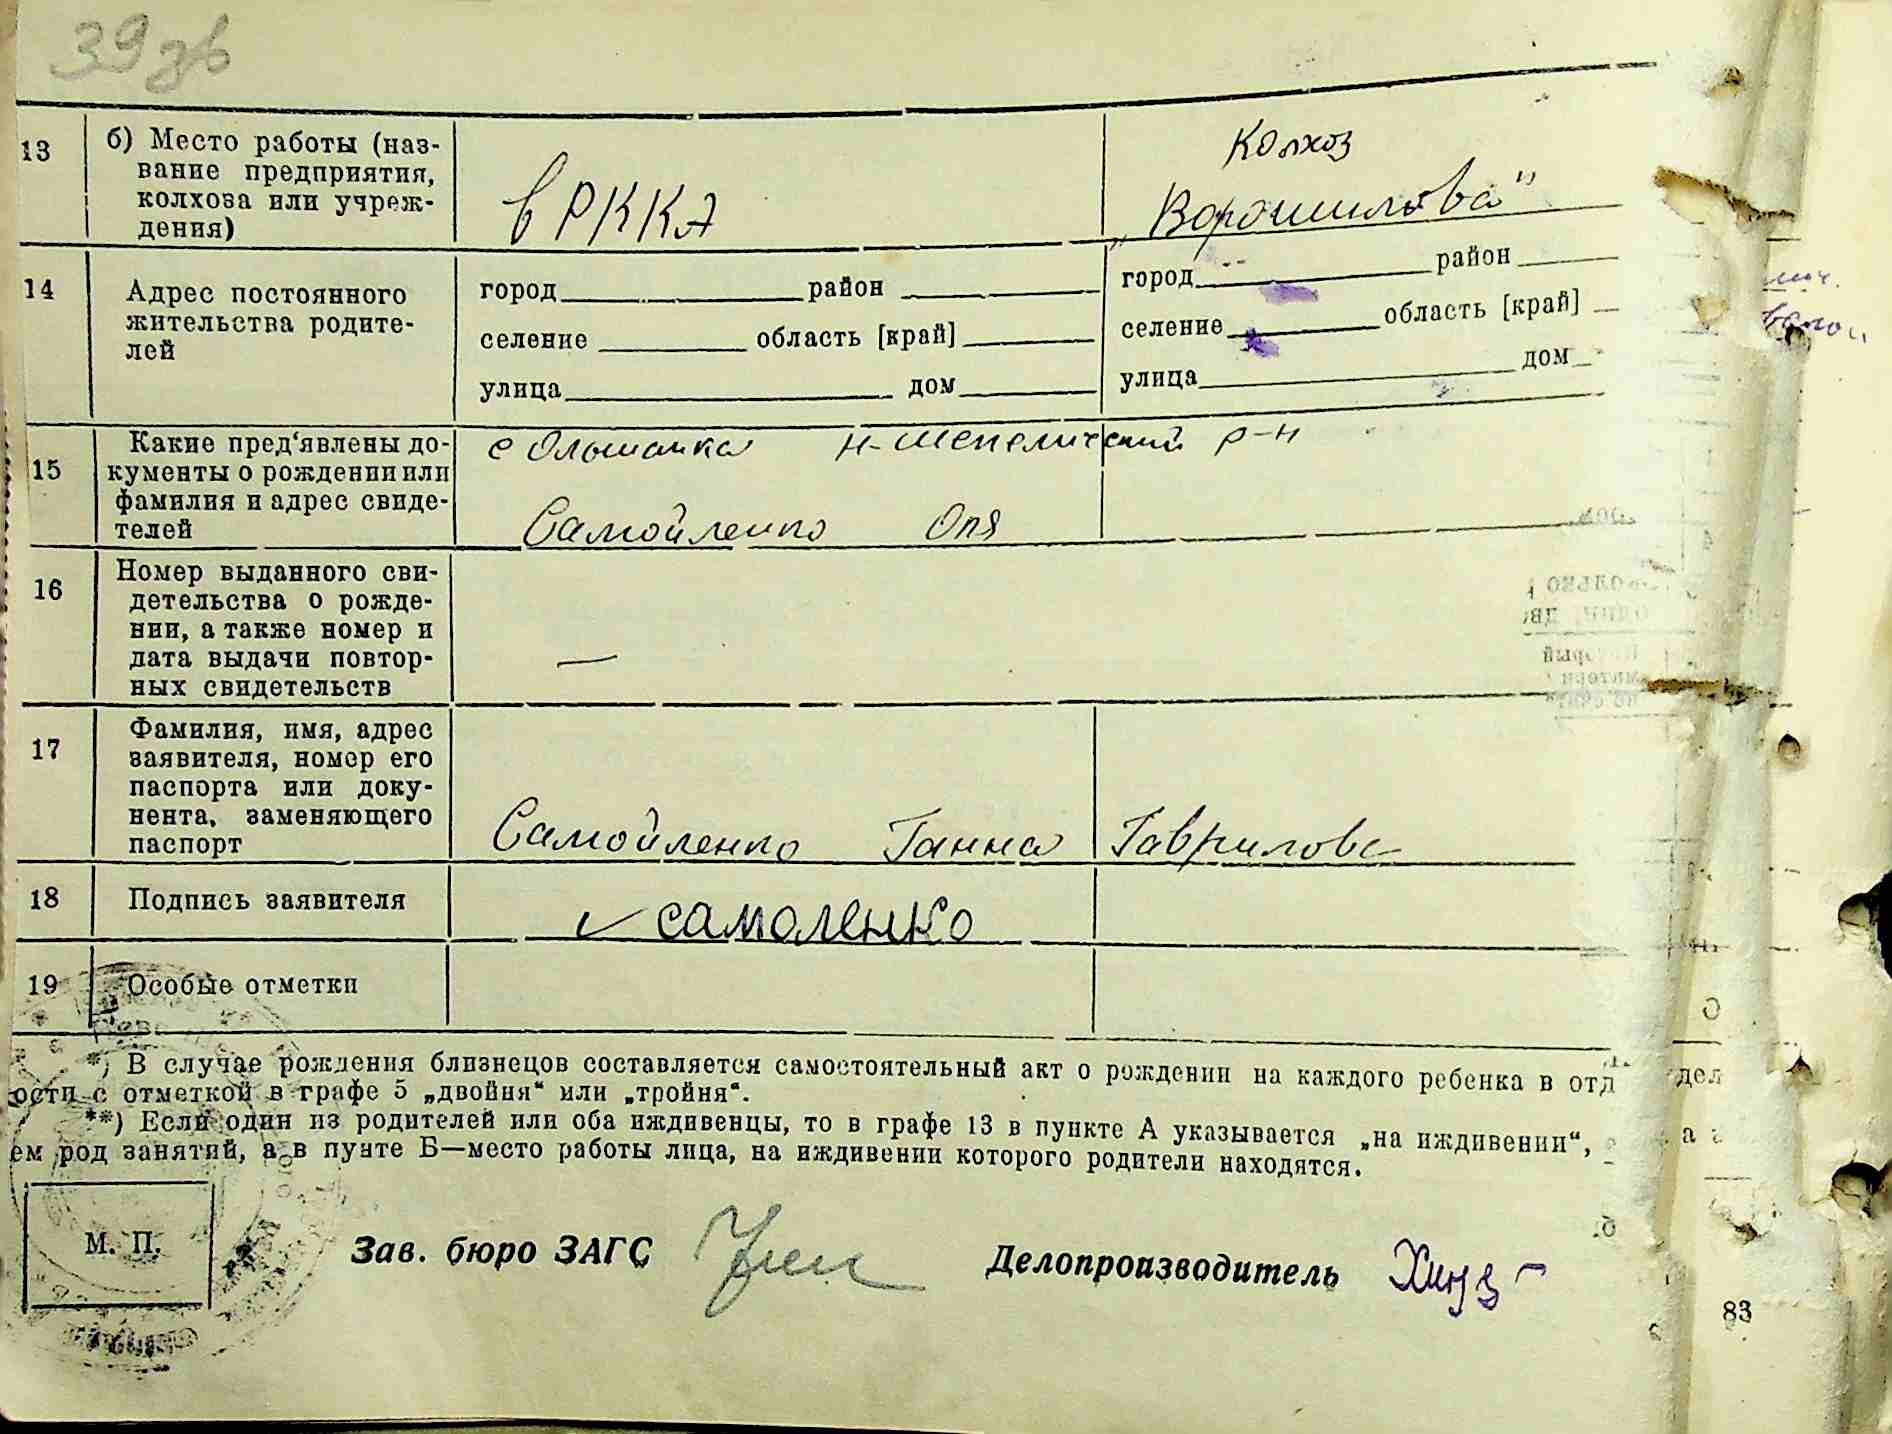 39 зв
13 б) Место работы (наз-
вание предприятия,
колхоза или учреж-
дения)
в РККА
Колхоз
„Ворошилова"
14 Адрес постоянного
жительства родите-
лей
город район
селение область [край]
улица дом
город район
селение область [край]
улица дом
15 Какие пред'явлены до-
кументы о рождении или
фамилия и адрес свиде-
телей
с Ольшанка Н-Шепеличский р-н
Самойленко Оля
16 Номер выданного сви-
детельства о рожде-
нии, а также номер и
дата выдачи повтор-
ных свидетельств
—
17 Фамилия, имя, адрес
заявителя, номер его
паспорта или доку-
нента, заменяющего
паспорт
Самойленко Ганна Гаврилова
18 Подпись заявителя
самоленко
19 Особые отметки
*) В случае рождения близнецов составляется самостоятельный акт о рождении на каждого ребенка в отд
ости с отметкой в графе 5 „двойня“ или „тройня“.
**) Если один из родителей или оба иждивенцы, то в графе 13 в пункте А указывается „на иждивении“,
ем род занятий, а в пункте Б—место работы лица, на иждивении которого родители находятся.
М. П.
Зав. бюро ЗАГС
Делопроизводитель
83